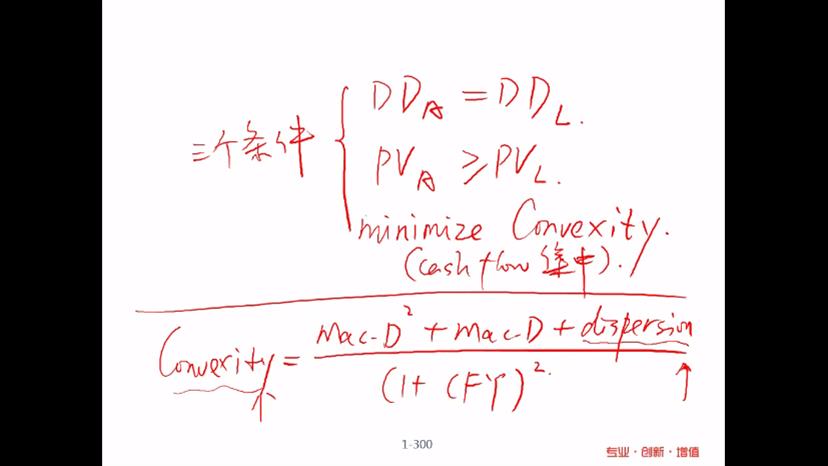 三个条件
DD_A = DD_L.
PV_A ≥ PV_L.
minimize Convexity.
(cash flow 集中).
Convexity = (Mac-D² + Mac-D + dispersion) / (1 + CFY)². ↑
↑
1-300
专业·创新·增值